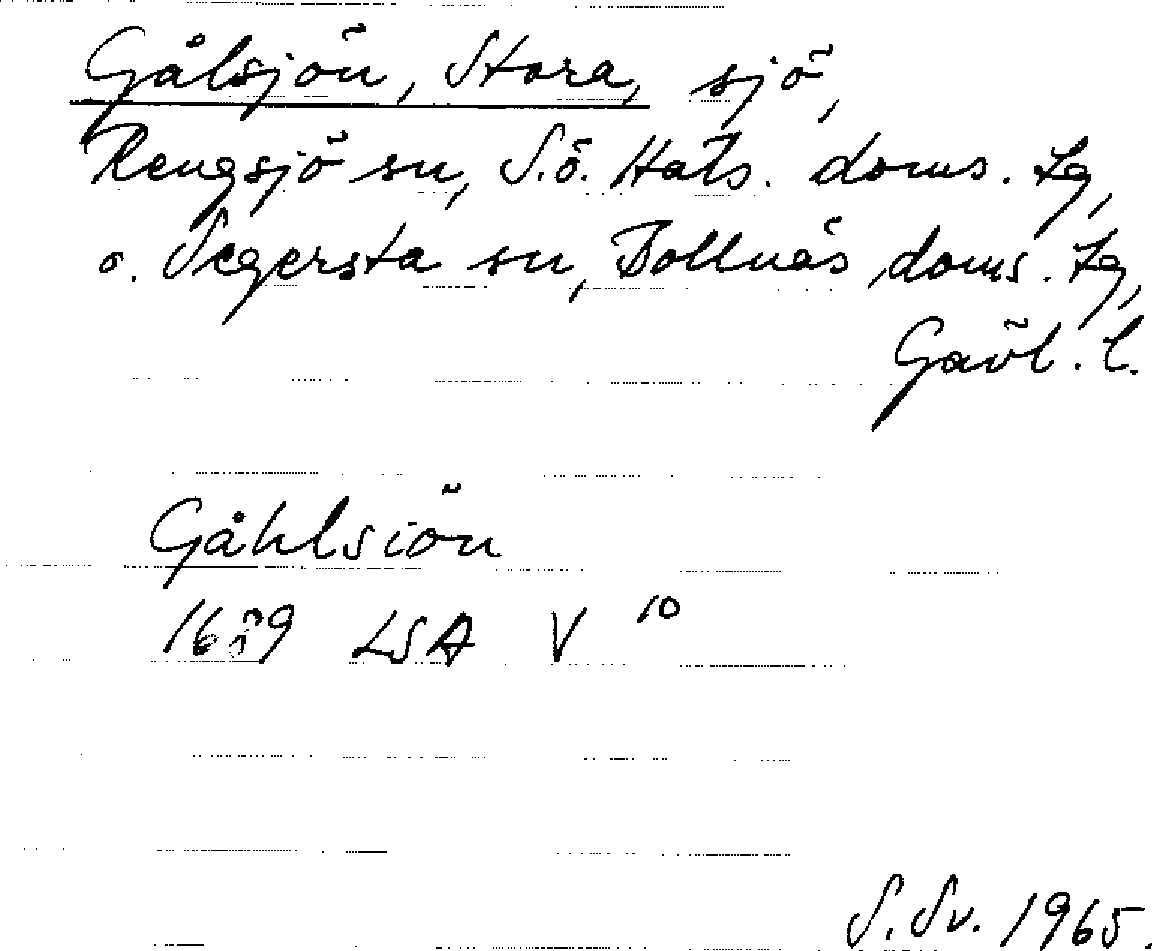 Gålsjön, Stora, sjö,
Rengsjö sn, S.ö. Häls. doms. tg,
o. Segersta sn, Bollnäs doms. tg,
Gävl. l.
Gåhlsiön
1689 LSA V 10
S. Sv. 1965.